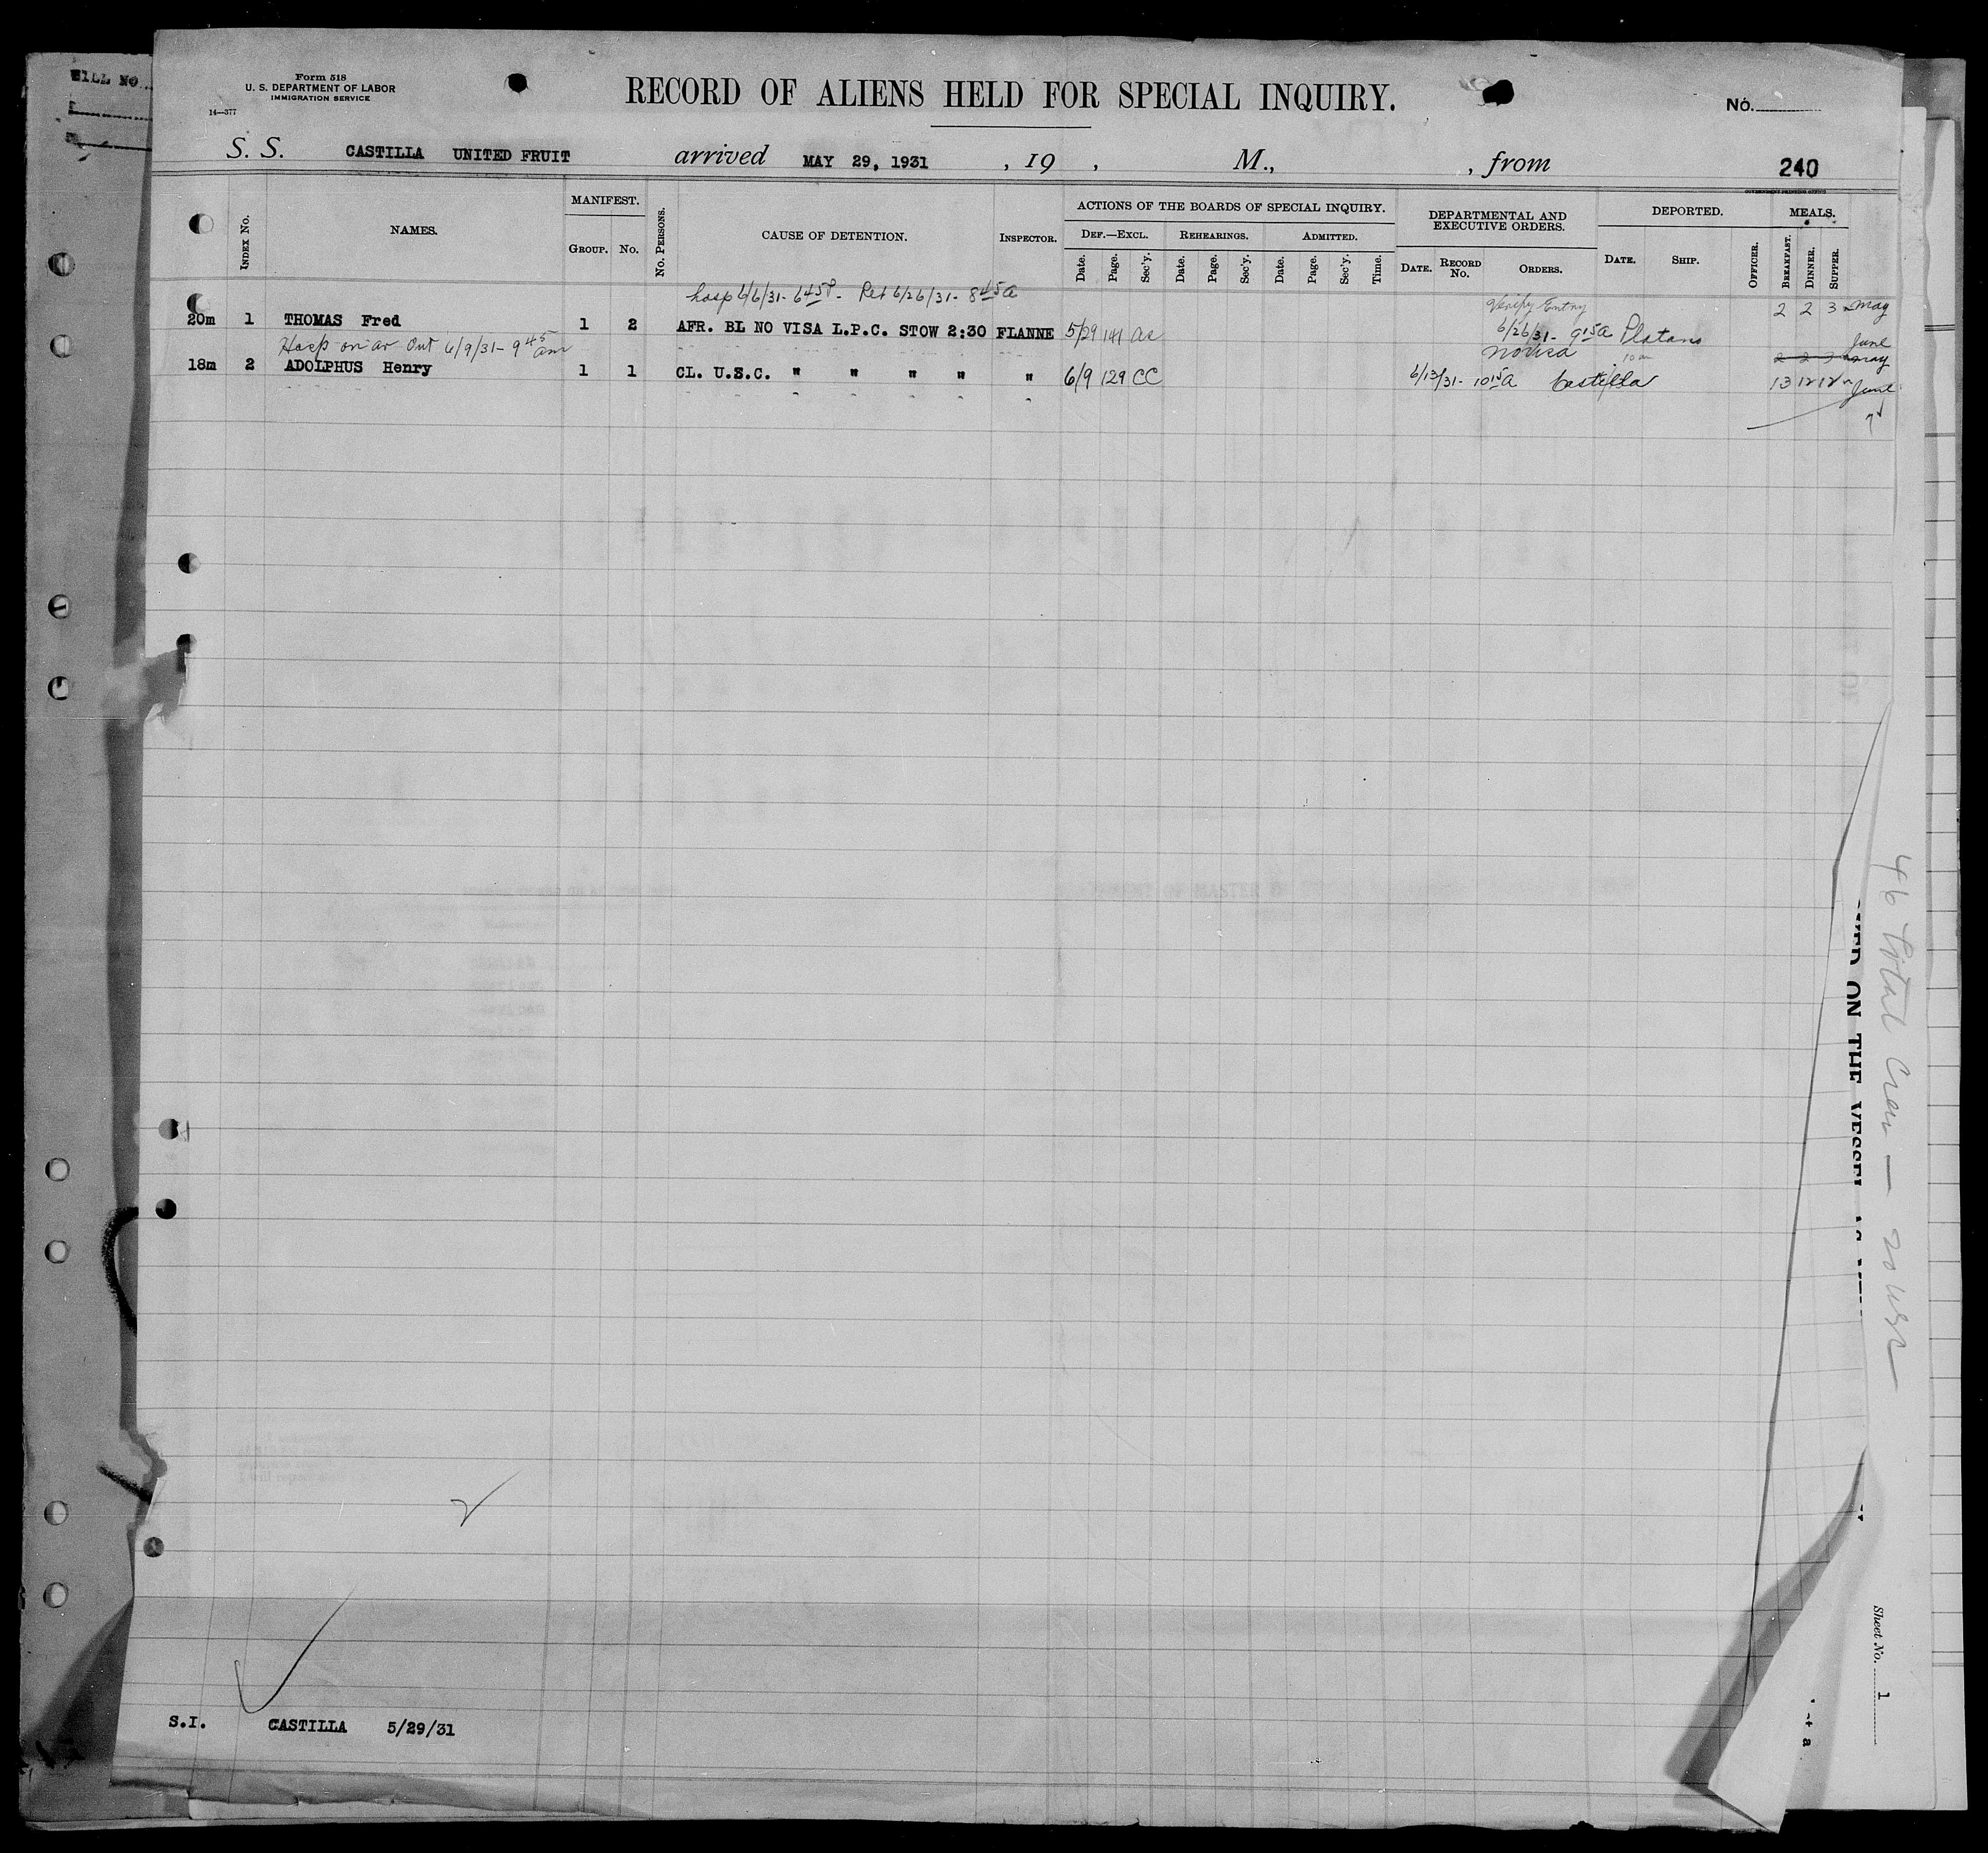 WILL NO
Form 518
U. S. DEPARTMENT OF LABOR
IMMIGRATION SERVICE
14—377
RECORD OF ALIENS HELD FOR SPECIAL INQUIRY.
No.
S. S. CASTILLA UNITED FRUIT arrived MAY 29, 1931 , 19 , M., , from 240
GOVERNMENT PRINTING OFFICE
INDEX No. NAMES. MANIFEST. GROUP. No. No. PERSONS. CAUSE OF DETENTION. INSPECTOR. ACTIONS OF THE BOARDS OF SPECIAL INQUIRY. DEPARTMENTAL AND EXECUTIVE ORDERS. DEPORTED. MEALS.
DEF.—EXCL. REHEARINGS. ADMITTED.
Date. Page. Sec'y. Date. Page. Sec'y. Date. Page. Sec'y. Time. DATE. RECORD No. ORDERS. DATE. SHIP. OFFICER. BREAKFAST. DINNER. SUPPER.
hosp 6/6/31 - 6 45 P - Ret 6/26/31 - 8 45 a Verify Entry
20m 1 THOMAS Fred 1 2 AFR. BL NO VISA L.P.C. STOW 2:30 FLANNE 5/29 141 ac 6/26/31 - 9 15 a Platano 2 2 3 May
Hosp on ar Out 6/9/31 - 9 45 am June
18m 2 ADOLPHUS Henry 1 1 CL. U.S.C. " " " " " 6/9 129 CC 6/13/31 - 10 15 a Castilla 10 am 2 2 3 May
13 12 12 June
ON THE VESSEL
46 total Crew —
Sheet No. 1
S.I. CASTILLA 5/29/31